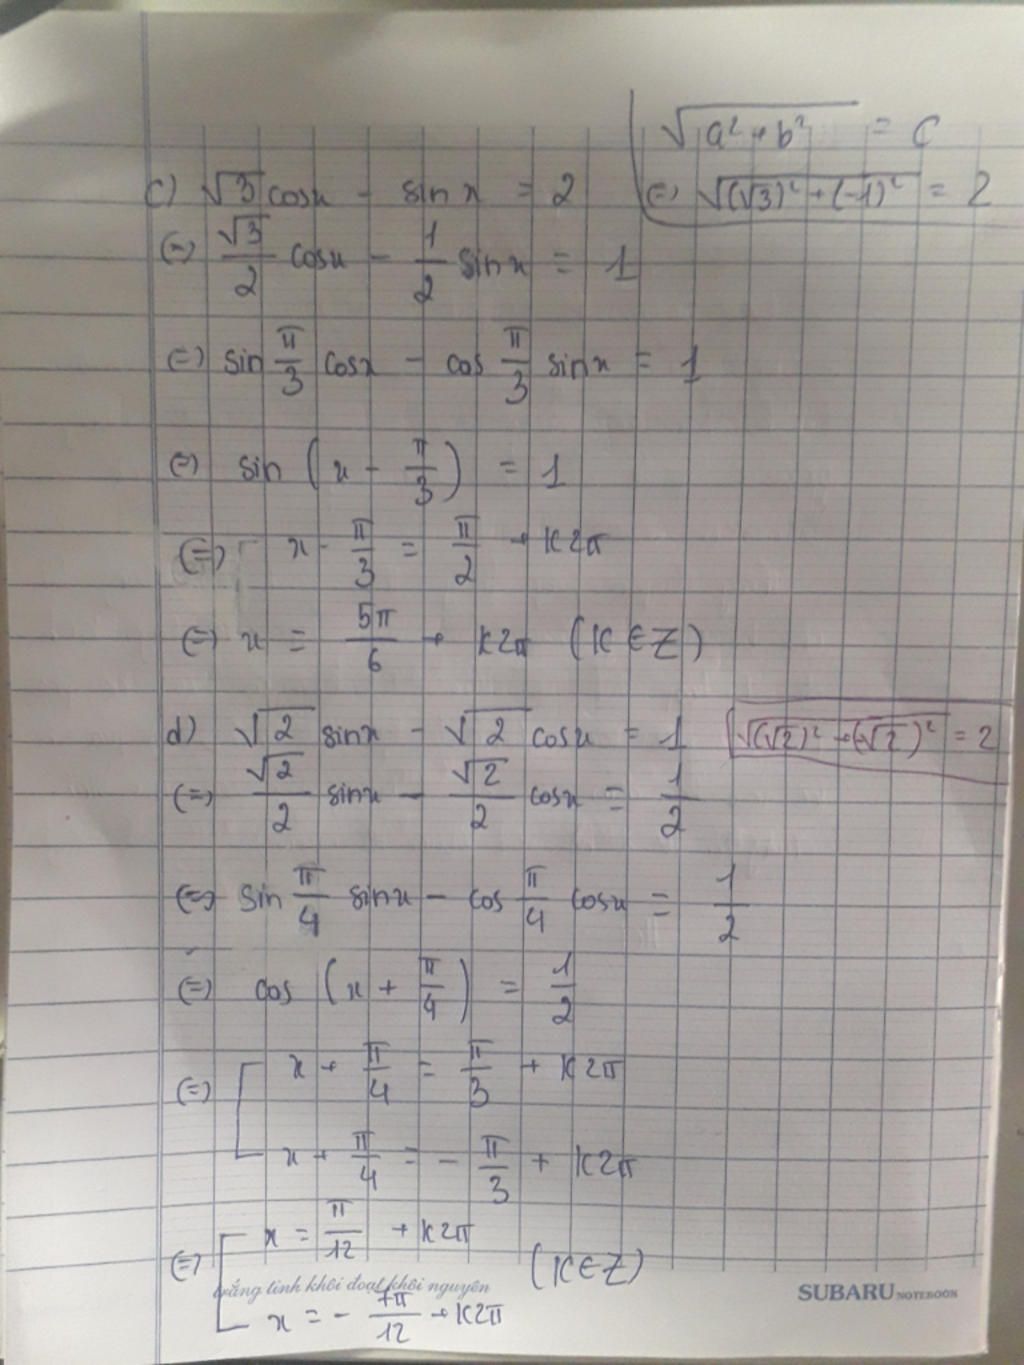 √(a² + b²) = C
c) √3 cosx - sinx = 2
(=) √((√3)² + (-1)²) = 2
(=) √3/2 cosx - 1/2 sinx = 1
(=) sin π/3 cosx - cos π/3 sinx = 1
(=) sin (x - π/3) = 1
(=) [ x - π/3 = π/2 + k2π
(=) x = 5π/6 + k2π (K ∈ Z)
d) √2 sinx - √2 cosx = 1
√((√2)² + (-√2)²) = 2
(=) √2/2 sinx - √2/2 cosx = 1/2
(=) sin π/4 sinx - cos π/4 cosx = 1/2
(=) cos (x + π/4) = 1/2
(=) [ x + π/4 = π/3 + k2π
x + π/4 = - π/3 + k2π
(=) [ x = π/12 + k2π
(K ∈ Z)
trắng tinh khôi đoạt khôi nguyên
x = - 7π/12 + k2π
SUBARU NOTEBOOK